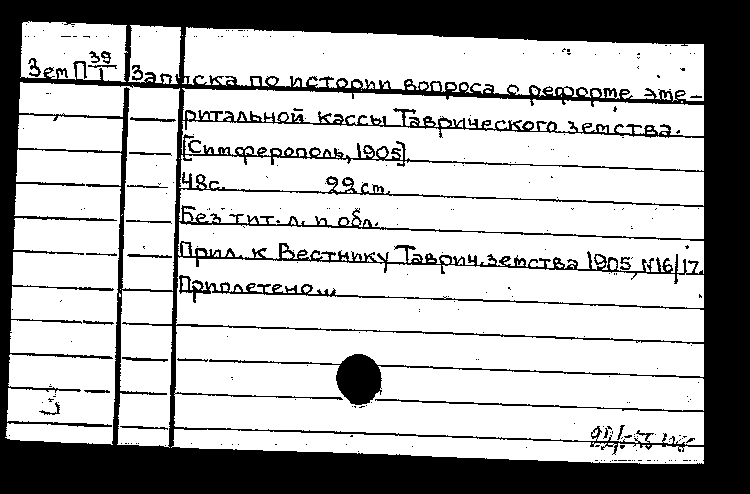 Зем П 39/1 Записка по истории вопроса о реформе эме-
ритальной кассы Таврического земства.
[Симферополь, 1905].
48с. 22 см.
Без тит. л. и обл.
Прил. к Вестнику Таврич. земства 1905, №16/17.
Приплетено...
З